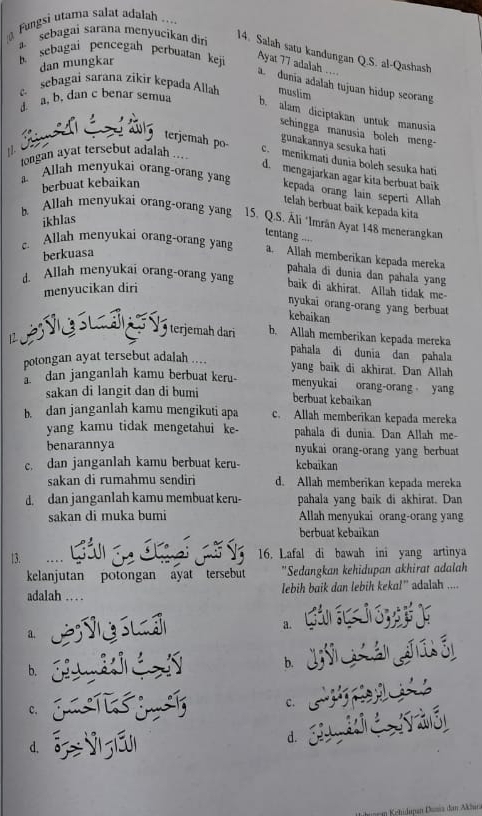 10. Fungsi utama salat adalah ....
a. sebagai sarana menyucikan diri
b. sebagai pencegah perbuatan keji
dan mungkar
c. sebagai sarana zikir kepada Allah
d. a, b, dan c benar semua
11. وَاللّٰهُ يُحِبُّ الْمُحْسِنِيْنَ terjemah po-
tongan ayat tersebut adalah ....
a. Allah menyukai orang-orang yang
berbuat kebaikan
b. Allah menyukai orang-orang yang
ikhlas
c. Allah menyukai orang-orang yang
berkuasa
d. Allah menyukai orang-orang yang
menyucikan diri
12. وَلَا تَبْغِ الْفَسَادَ فِى الْاَرْضِ terjemah dari
potongan ayat tersebut adalah ....
a. dan janganlah kamu berbuat keru-
sakan di langit dan di bumi
b. dan janganlah kamu mengikuti apa
yang kamu tidak mengetahui ke-
benarannya
c. dan janganlah kamu berbuat keru-
sakan di rumahmu sendiri
d. dan janganlah kamu membuat keru-
sakan di muka bumi
13. .... وَلَا تَنْسَ نَصِيْبَكَ مِنَ الدُّنْيَا
kelanjutan potongan ayat tersebut
adalah ....
a. الْفَسَادَ فِى الْاَرْضِ
b. لَا يُحِبُّ الْمُفْسِدِيْنَ
c. وَاَحْسِنْ كَمَآ اَحْسَنَ
d. الدَّارَ الْاٰخِرَةَ
14. Salah satu kandungan Q.S. al-Qashash
Ayat 77 adalah ....
a. dunia adalah tujuan hidup seorang
muslim
b. alam diciptakan untuk manusia
sehingga manusia boleh meng-
gunakannya sesuka hati
c. menikmati dunia boleh sesuka hati
d. mengajarkan agar kita berbuat baik
kepada orang lain seperti Allah
telah berbuat baik kepada kita
15. Q.S. Āli ‘Imrān Ayat 148 menerangkan
tentang ....
a. Allah memberikan kepada mereka
pahala di dunia dan pahala yang
baik di akhirat. Allah tidak me-
nyukai orang-orang yang berbuat
kebaikan
b. Allah memberikan kepada mereka
pahala di dunia dan pahala
yang baik di akhirat. Dan Allah
menyukai orang-orang yang
berbuat kebaikan
c. Allah memberikan kepada mereka
pahala di dunia. Dan Allah me-
nyukai orang-orang yang berbuat
kebaikan
d. Allah memberikan kepada mereka
pahala yang baik di akhirat. Dan
Allah menyukai orang-orang yang
berbuat kebaikan
16. Lafal di bawah ini yang artinya
"Sedangkan kehidupan akhirat adalah
lebih baik dan lebih kekal" adalah ....
a. بَلْ تُؤْثِرُوْنَ الْحَيٰوةَ الدُّنْيَا
b. اِنَّ هٰذَا لَفِى الصُّحُفِ الْاُوْلٰى
c. صُحُفِ اِبْرٰهِيْمَ وَمُوْسٰى
d. اِنَّ اللّٰهَ لَا يُحِبُّ الْمُفْسِدِيْنَ
Kehidupan Dunia dan